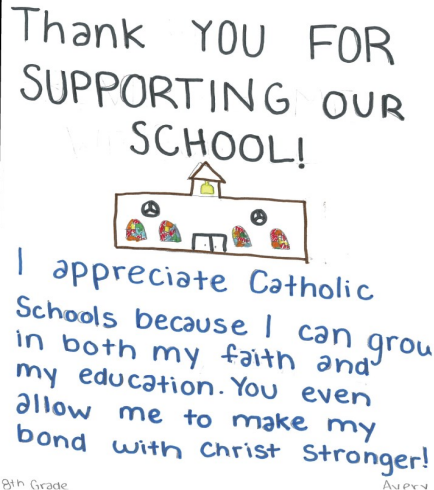 Thank YOU FOR
SUPPORTING OUR
SCHOOL!
I appreciate Catholic
Schools because I can grow
in both my faith and
my education. You even
allow me to make my
bond with Christ stronger!
8th Grade
Avery